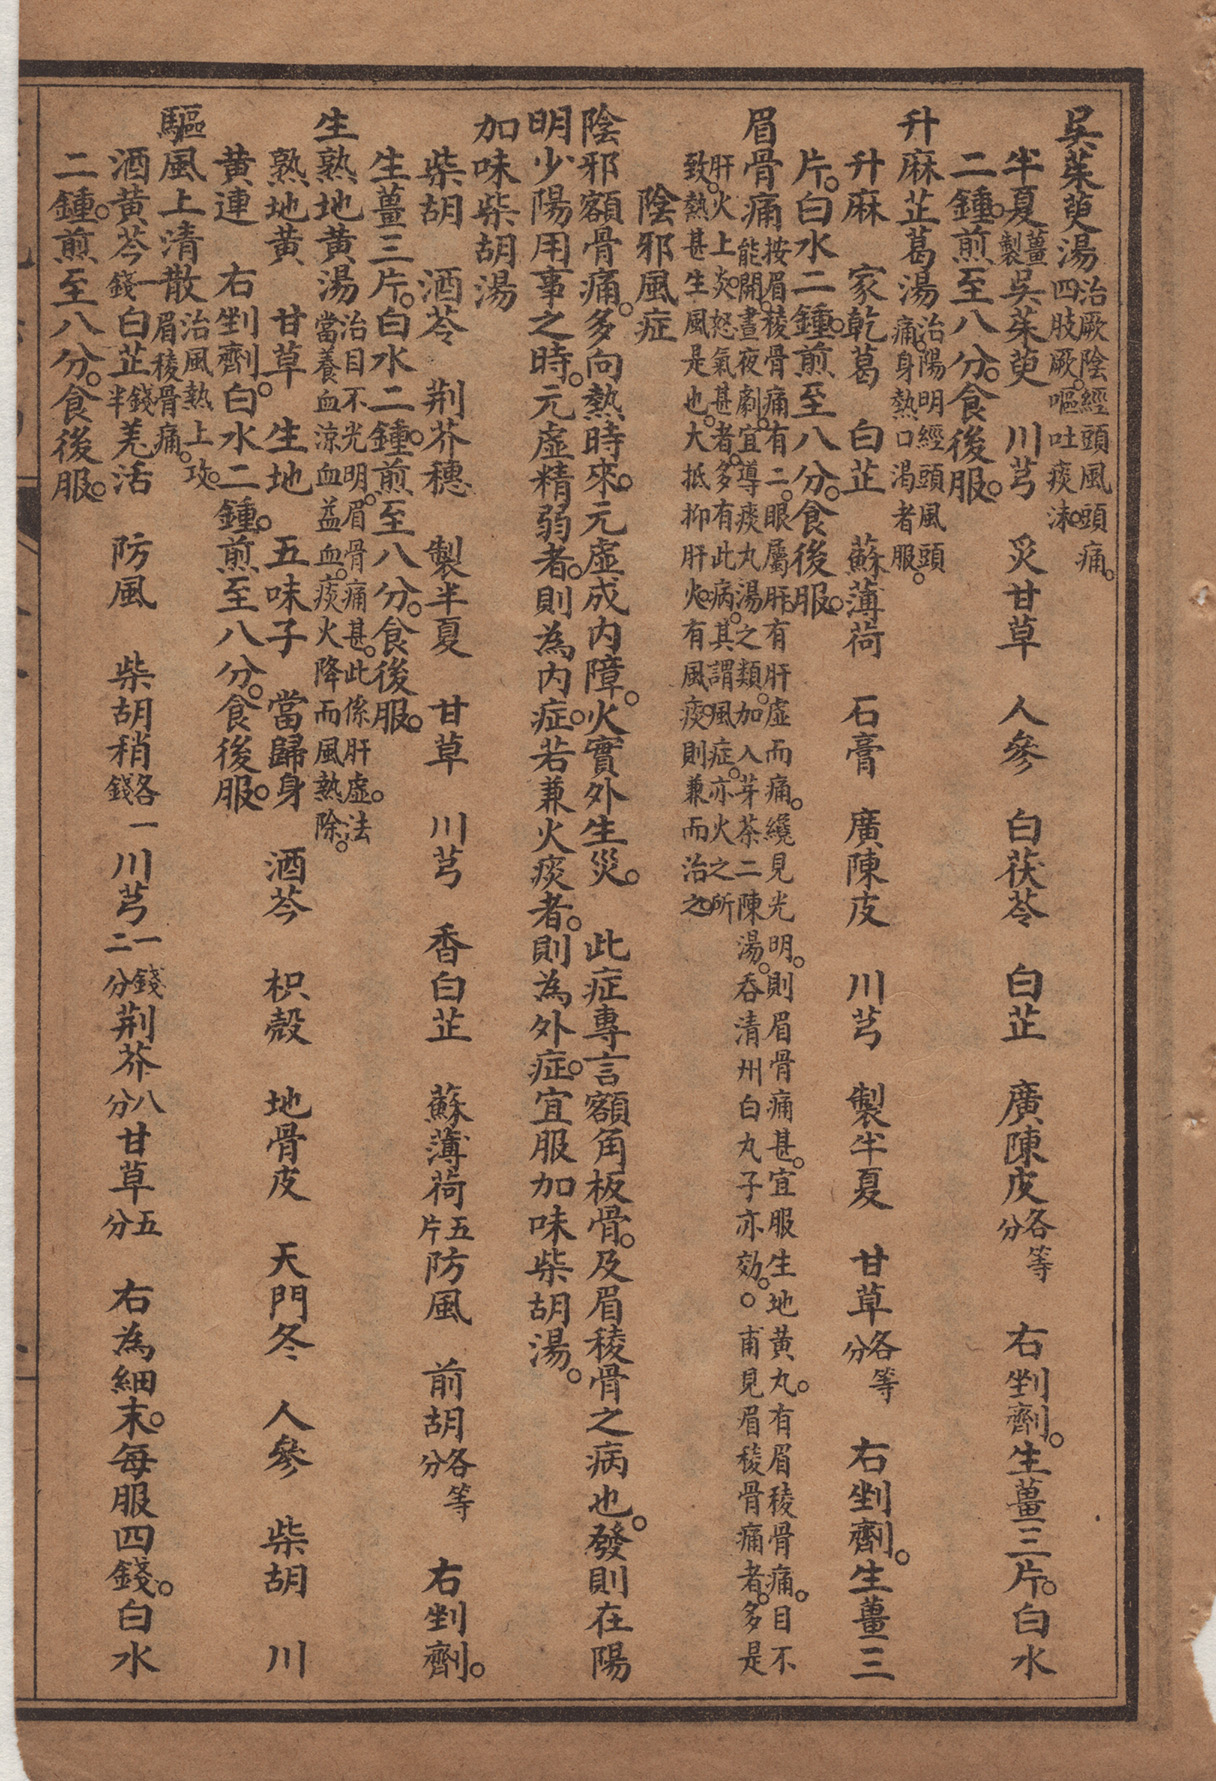 吳茱萸湯治厥陰經頭風頭痛。四肢厥。嘔吐痰沫。
半夏薑製吳茱萸　川芎　炙甘草　人參　白茯苓　白芷　廣陳皮各等分　右剉劑。生薑三片。白水
二鍾。煎至八分。食後服。
升麻芷葛湯治陽明經頭風頭痛。身熱口渴者服。
升麻　家乾葛　白芷　蘇薄荷　石膏　廣陳皮　川芎　製半夏　甘草各等分　右剉劑。生薑三
片。白水二鍾。煎至八分。食後服。
眉骨痛按眉稜骨痛有二。眼屬肝。有肝虛而痛。纔見光明。則眉骨痛甚。宜服生地黄丸。有眉稜骨痛。目不
能開。晝夜劇。宜導痰丸湯之類。加入芽茶二陳湯。吞清州白丸子亦効。○甫見眉稜骨痛者。多是
肝火上炎。怒氣甚者。多有此病。其謂風症。亦火之所
致。熱甚生風是也。大抵抑肝火。有風痰。則兼而治之。
陰邪風症
陰邪額骨痛。多向熱時來。元虛成内障。火實外生災。　此症專言額角板骨。及眉稜骨之病也。發則在陽
明少陽用事之時。元虛精弱者。則為内症。若兼火痰者。則為外症。宜服加味柴胡湯。
加味柴胡湯
柴胡　酒芩　荆芥穗　製半夏　甘草　川芎　香白芷　蘇薄荷五片防風　前胡各等分　右剉劑。
生薑三片。白水二鍾。煎至八分。食後服。
生熟地黄湯治目不光明。眉骨痛甚。此係肝虛。法當養血涼血益血。痰火降而風熱除。
熟地黄　甘草　生地　五味子　當歸身　酒芩　枳殻　地骨皮　天門冬　人參　柴胡　川
黄連　右剉劑。白水二鍾。煎至八分。食後服。
驅風上清散治風熱上攻。眉稜骨痛。
酒黄芩一錢白芷錢半羌活　防風　柴胡稍各一錢川芎一錢二分荆芥八分甘草五分　右為細末。每服四錢。白水
二鍾。煎至八分。食後服。